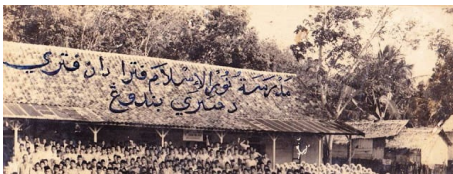 مدرسة نورالاسلام فترا دان فتري
دسري بندوغ